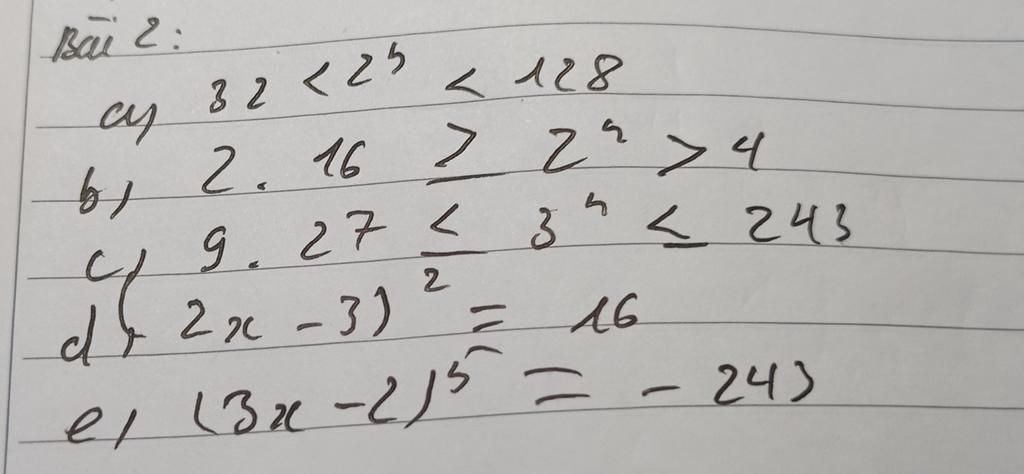 Bài 2:
a, 32 < 2ⁿ < 128
b, 2 . 16 ≥ 2ⁿ > 4
c, 9 . 27 ≤ 3ⁿ ≤ 243
d, (2x - 3)² = 16
e, (3x - 2)⁵ = - 243